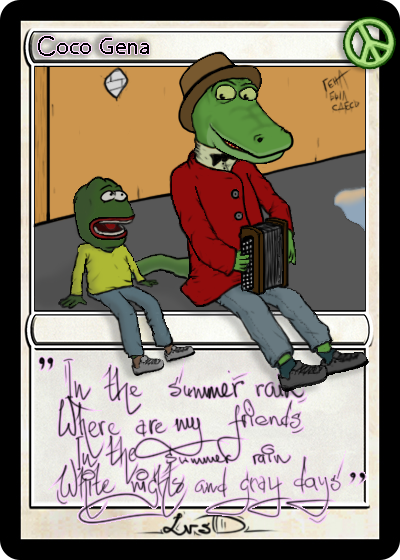 Coco Gena
ГЕНА
БЫЛ
"In the summer rain
Where are my friends
In the summer rain
White nights and gray days"